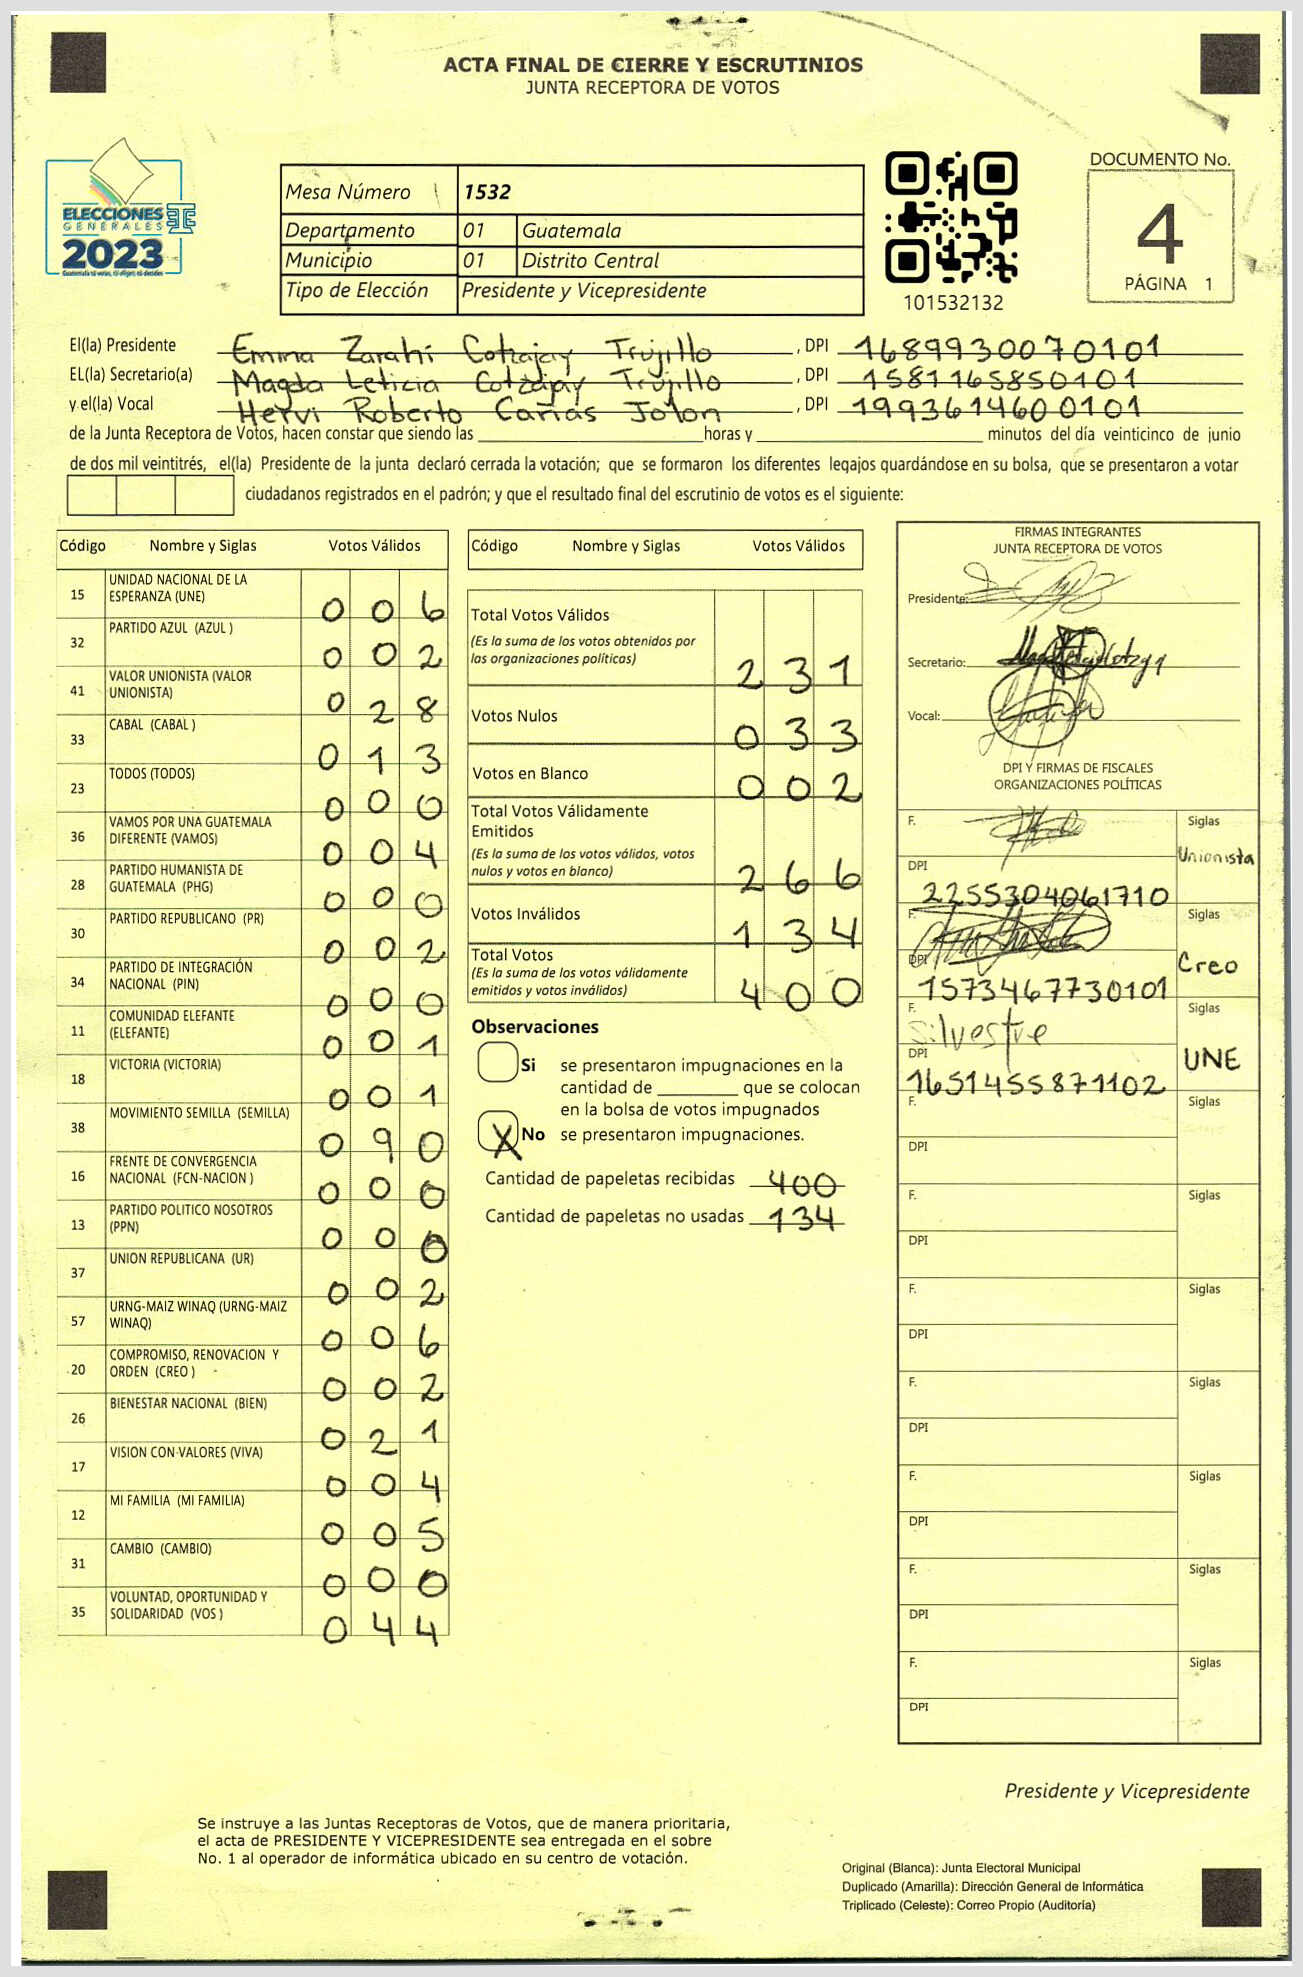 ACTA FINAL DE CIERRE Y ESCRUTINIOS
JUNTA RECEPTORA DE VOTOS
ELECCIONES
GENERALES
2023
Guatemala tú votas, tú eliges, tú decides
Mesa Número 1532
Departamento 01 Guatemala
Municipio 01 Distrito Central
Tipo de Elección Presidente y Vicepresidente
101532132
DOCUMENTO No.
4
PÁGINA 1
El(la) Presidente Emma Zarahí Cotzajay Trujillo, DPI 1689930070101
EL(la) Secretario(a) Magda Leticia Cotzajay Trujillo, DPI 1581165850101
y el(la) Vocal Hervi Roberto Cañas Jolon, DPI 1993614600101
de la Junta Receptora de Votos, hacen constar que siendo las ____ horas y ____ minutos del día veinticinco de junio
de dos mil veintitrés, el(la) Presidente de la junta declaró cerrada la votación; que se formaron los diferentes legajos guardándose en su bolsa, que se presentaron a votar
ciudadanos registrados en el padrón; y que el resultado final del escrutinio de votos es el siguiente:
Código Nombre y Siglas Votos Válidos
15 UNIDAD NACIONAL DE LA ESPERANZA (UNE) 006
32 PARTIDO AZUL (AZUL ) 002
41 VALOR UNIONISTA (VALOR UNIONISTA) 028
33 CABAL (CABAL ) 013
23 TODOS (TODOS) 000
36 VAMOS POR UNA GUATEMALA DIFERENTE (VAMOS) 004
28 PARTIDO HUMANISTA DE GUATEMALA (PHG) 000
30 PARTIDO REPUBLICANO (PR) 002
34 PARTIDO DE INTEGRACIÓN NACIONAL (PIN) 000
11 COMUNIDAD ELEFANTE (ELEFANTE) 001
18 VICTORIA (VICTORIA) 001
38 MOVIMIENTO SEMILLA (SEMILLA) 090
16 FRENTE DE CONVERGENCIA NACIONAL (FCN-NACION ) 000
13 PARTIDO POLITICO NOSOTROS (PPN) 000
37 UNION REPUBLICANA (UR) 002
57 URNG-MAIZ WINAQ (URNG-MAIZ WINAQ) 006
20 COMPROMISO, RENOVACION Y ORDEN (CREO ) 002
26 BIENESTAR NACIONAL (BIEN) 021
17 VISION CON VALORES (VIVA) 004
12 MI FAMILIA (MI FAMILIA) 005
31 CAMBIO (CAMBIO) 000
35 VOLUNTAD, OPORTUNIDAD Y SOLIDARIDAD (VOS ) 044
Código Nombre y Siglas Votos Válidos
Total Votos Válidos
(Es la suma de los votos obtenidos por
las organizaciones políticas) 231
Votos Nulos 033
Votos en Blanco 002
Total Votos Válidamente
Emitidos
(Es la suma de los votos válidos, votos
nulos y votos en blanco) 266
Votos Inválidos 134
Total Votos
(Es la suma de los votos válidamente
emitidos y votos inválidos) 400
Observaciones
Si se presentaron impugnaciones en la
cantidad de ____ que se colocan
en la bolsa de votos impugnados
X No se presentaron impugnaciones.
Cantidad de papeletas recibidas 400
Cantidad de papeletas no usadas 134
FIRMAS INTEGRANTES
JUNTA RECEPTORA DE VOTOS
Presidente:
Secretario:
Vocal:
DPI Y FIRMAS DE FISCALES
ORGANIZACIONES POLÍTICAS
F. Siglas Unionista
DPI 2255304061710
F. Siglas Creo
DPI 1573467730101
F. Silvestre Siglas UNE
DPI 1651455871102
F. Siglas
DPI
F. Siglas
DPI
F. Siglas
DPI
F. Siglas
DPI
F. Siglas
DPI
F. Siglas
DPI
F. Siglas
DPI
Presidente y Vicepresidente
Se instruye a las Juntas Receptoras de Votos, que de manera prioritaria,
el acta de PRESIDENTE Y VICEPRESIDENTE sea entregada en el sobre
No. 1 al operador de informática ubicado en su centro de votación.
Original (Blanca): Junta Electoral Municipal
Duplicado (Amarilla): Dirección General de Informática
Triplicado (Celeste): Correo Propio (Auditoría)